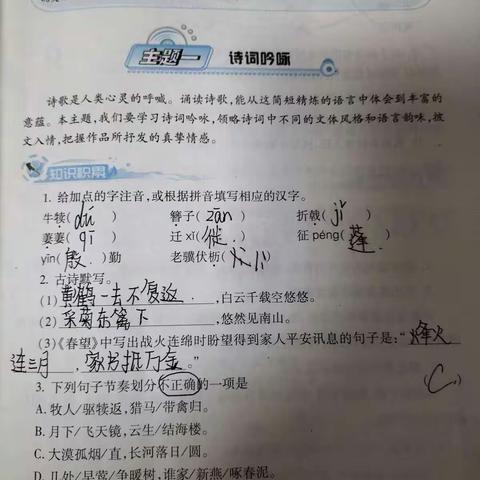 主题一 诗词吟咏
诗歌是人类心灵的呼喊。诵读诗歌,能从这简短精炼的语言中体会到丰富的
意蕴。本主题,我们要学习诗词吟咏,领略诗词中不同的文体风格和语言韵味,披
文入情,把握作品所抒发的真挚情感。
知识积累
1. 给加点的字注音,或根据拼音填写相应的汉字。
牛犊(dú) 簪子(zān) 折戟(jǐ)
萋萋(qī) 迁xǐ(徙) 征péng(蓬)
yīn(殷)勤 老骥伏枥(lì)
2. 古诗默写。
(1)黄鹤一去不复返,白云千载空悠悠。
(2)采菊东篱下,悠然见南山。
(3)《春望》中写出战火连绵时盼望得到家人平安讯息的句子是:“烽火
连三月,家书抵万金。”
3. 下列句子节奏划分不正确的一项是 (C)
A. 牧人/驱犊返,猎马/带禽归。
B. 月下/飞天镜,云生/结海楼。
C. 大漠孤烟/直,长河落日/圆。
D. 几处/早莺/争暖树,谁家/新燕/啄春泥。